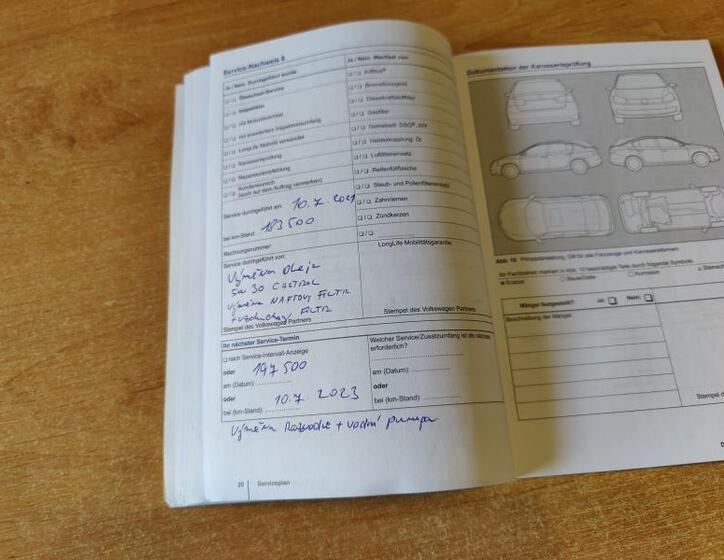 Service-Nachweis 8
Ja / Nein Durchgeführt wurde:
Ja / Nein Wechsel von:
Ölwechsel-Service
Inspektion
mit Motorölwechsel
LongLife Motoröl verwendet
Karosserieprüfung
Reparaturempfehlung
Kundenwunsch
(auch auf den Auftrag vermerken)
AdBlue®
Bremsflüssigkeit
Dieselkraftstofffilter
Gasfilter
Haldexkupplung: Öl
Luftfiltereinsatz
Reifenfüllflasche
Staub- und Pollenfiltereinsatz
Zahnriemen
Zündkerzen
Service durchgeführt am: 10.7 2021
bei km-Stand: 183500
Rechnungsnummer:
Service durchgeführt von:
LongLife Mobilitätsgarantie
Výměna oleje
5W 30 CASTROL
výměna NAFTOVÝ FILTR
+ vzduchový FILTR
Stempel des Volkswagen Partners
Stempel des Volkswagen Partners
Ihr nächster Service-Termin
nach Service-Intervall-Anzeige
oder 197500
am (Datum):
oder 10.7. 2023
bei (km-Stand)
Welcher Service/Zusatzumfang ist als nächstes
erforderlich?
am (Datum):
oder
bei (km-Stand):
Výměna Rozvodů + vodní pumpa
20 Serviceplan
Dokumentation der Karosserieprüfung
Abb. 10 Prinzipdarstellung. Gilt für alle Fahrzeuge und Karosserieformen.
Ihr Fachbetrieb markiert in Abb. 10 beschädigte Teile durch folgende Symbole:
Kratzer
Korrosion
Mängel festgestellt? Ja: Nein:
Beschreibung der Mängel:
Stempel d